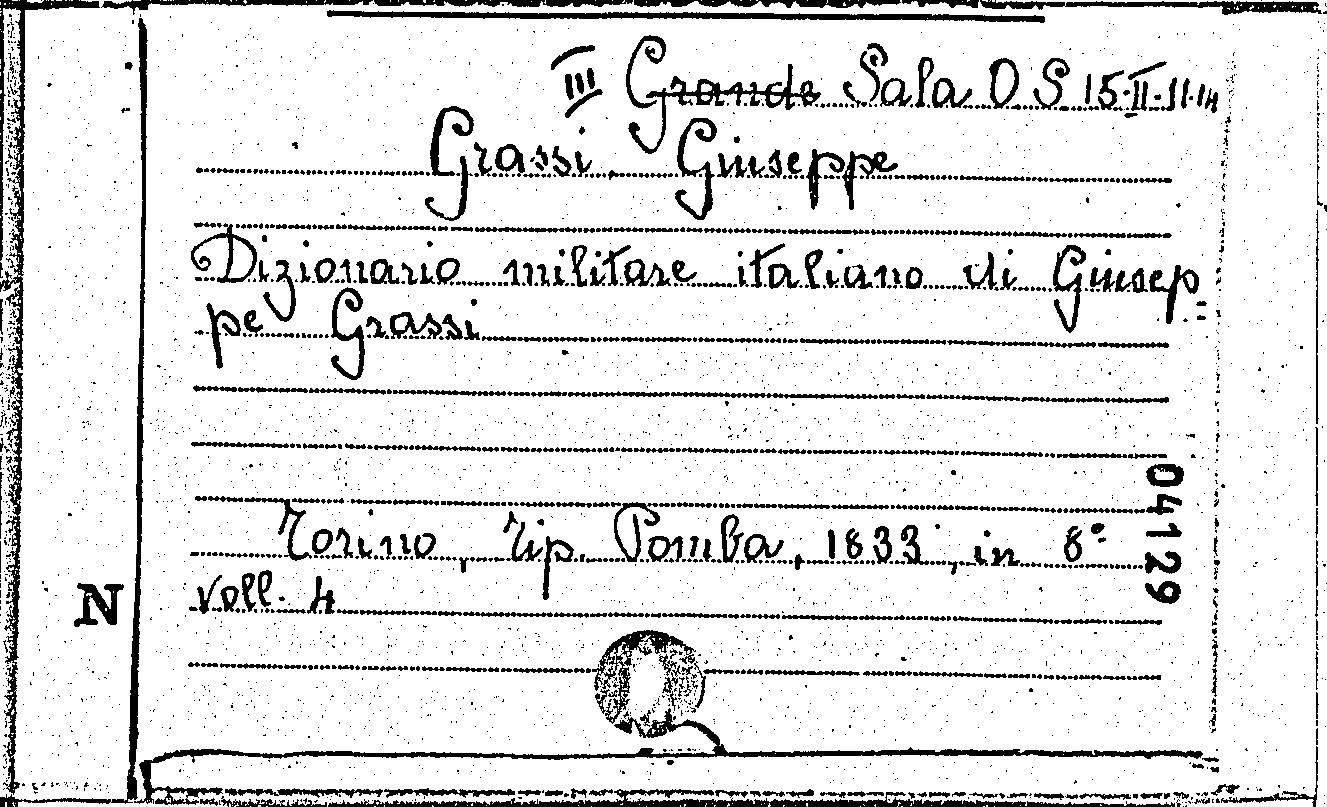 III Grande Sala D S 15-II-11.14
Grassi, Giuseppe
Dizionario militare italiano di Giusep=
pe Grassi
Torino, Tip. Pomba, 1833, in 8°
voll. 4
04129
N